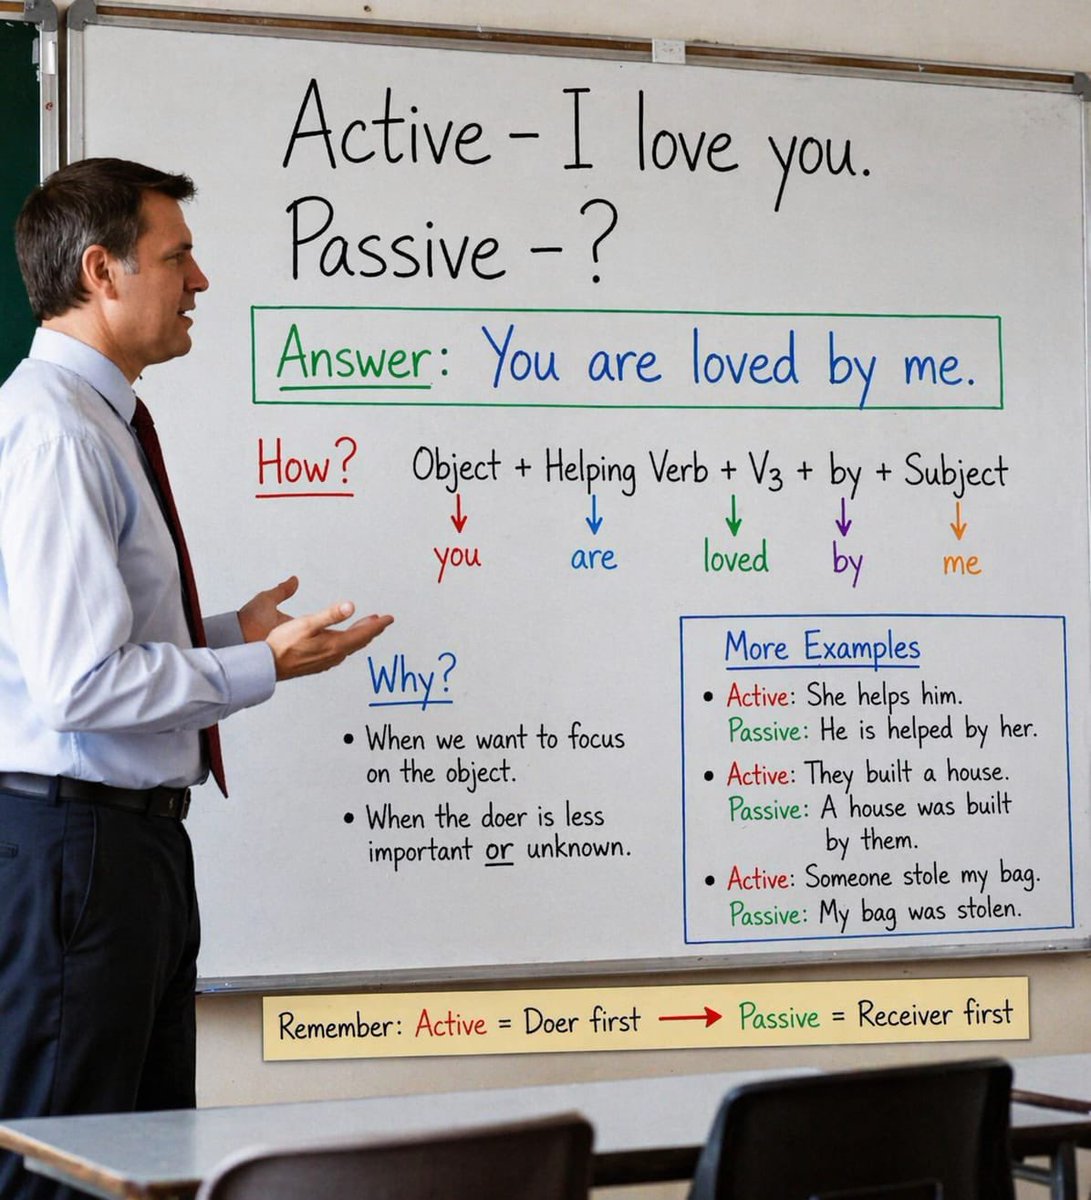 Active – I love you.
Passive – ?
Answer: You are loved by me.
How? Object + Helping Verb + V3 + by + Subject
you are loved by me
Why?
• When we want to focus
on the object.
• When the doer is less
important or unknown.
More Examples
• Active: She helps him.
Passive: He is helped by her.
• Active: They built a house.
Passive: A house was built
by them.
• Active: Someone stole my bag.
Passive: My bag was stolen.
Remember: Active = Doer first → Passive = Receiver first